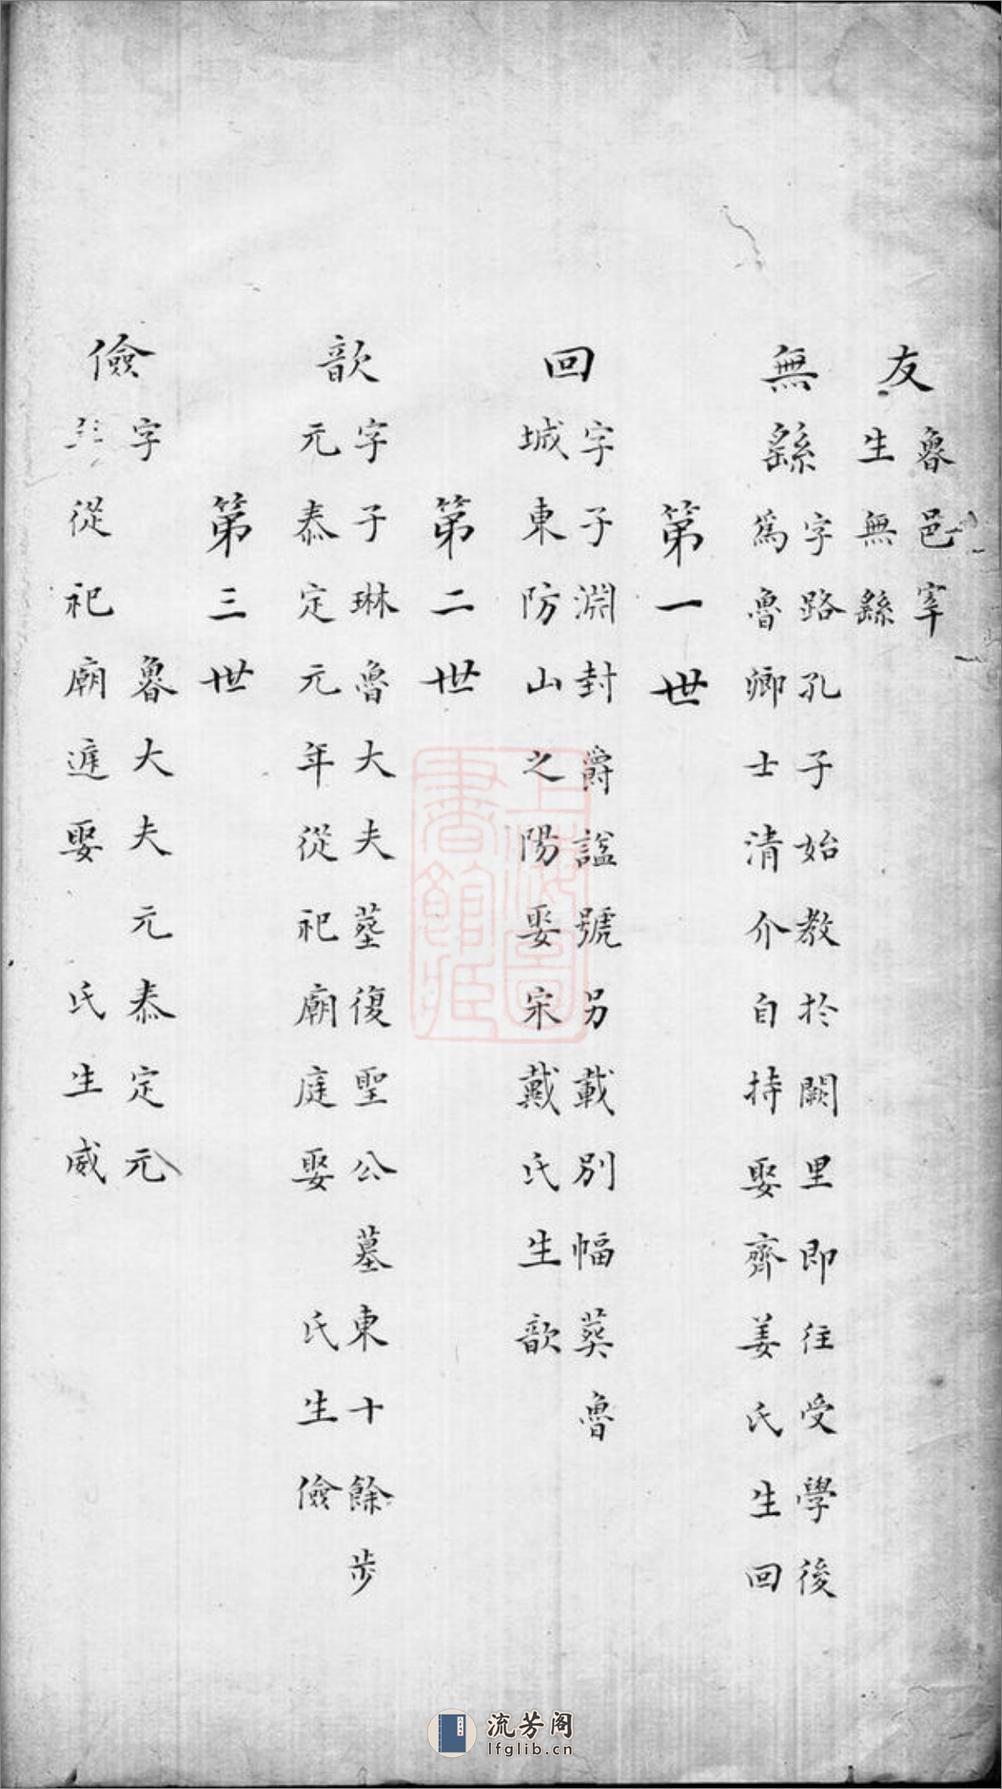 友
魯邑宰
生無繇
無繇
字路孔子始教於闕里即往受學後
為魯卿士清介自持娶齊姜氏生回
第一世
回
字子淵封爵謚號另載別幅葬魯
城東防山之陽娶宋戴氏生歆
第二世
歆
字子琳魯大夫墓復聖公墓東十餘步
元泰定元年從祀廟庭娶 氏生儉
第三世
儉
字 魯大夫元泰定元
年從祀廟 娶 氏生威
上海圖書館藏
流芳阁
lfglib.cn